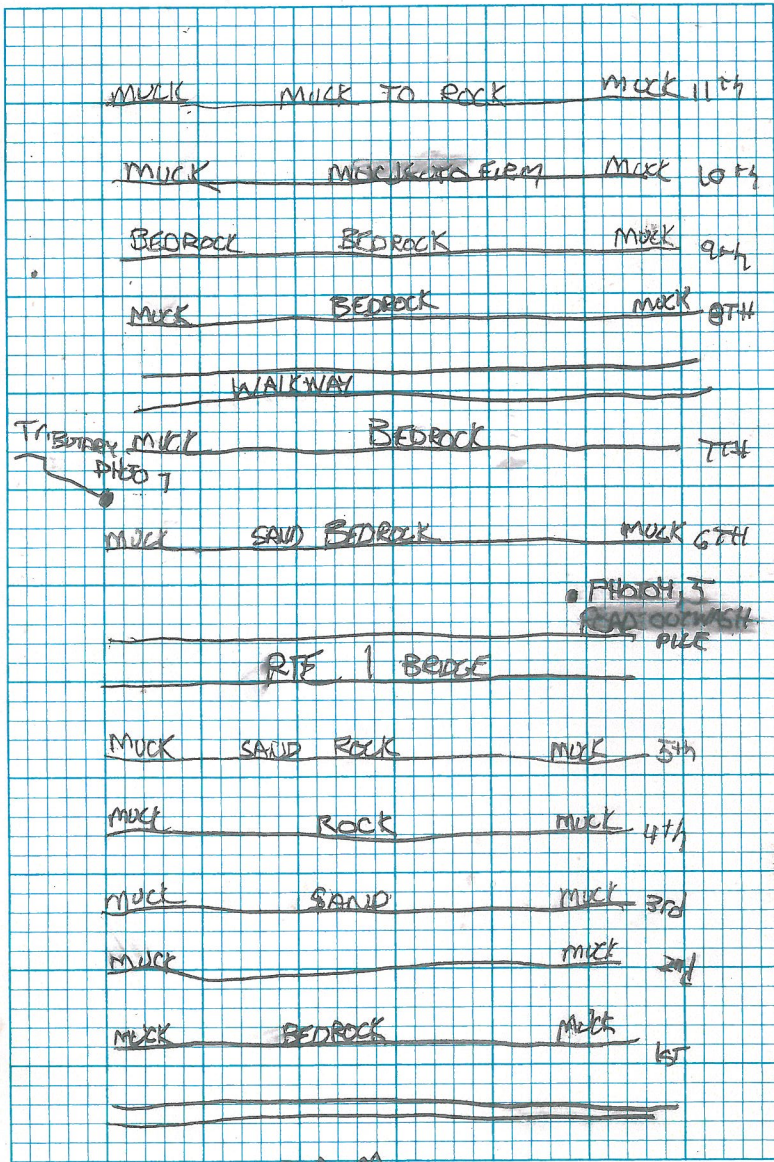 MUCK MUCK TO ROCK MUCK 11th
MUCK FIRM MUCK 10th
BEDROCK BEDROCK MUCK 9th
MUCK BEDROCK MUCK 8TH
WALKWAY
TRIBUTARY MUCK BEDROCK 7TH
PHOTO 7
MUCK SAND BEDROCK MUCK 6TH
PHOTO 4, 5
PILE
RTE 1 BRIDGE
MUCK SAND ROCK MUCK 5th
MUCK ROCK MUCK 4th
MUCK SAND MUCK 3rd
MUCK MUCK 2nd
MUCK BEDROCK MUCK 1ST